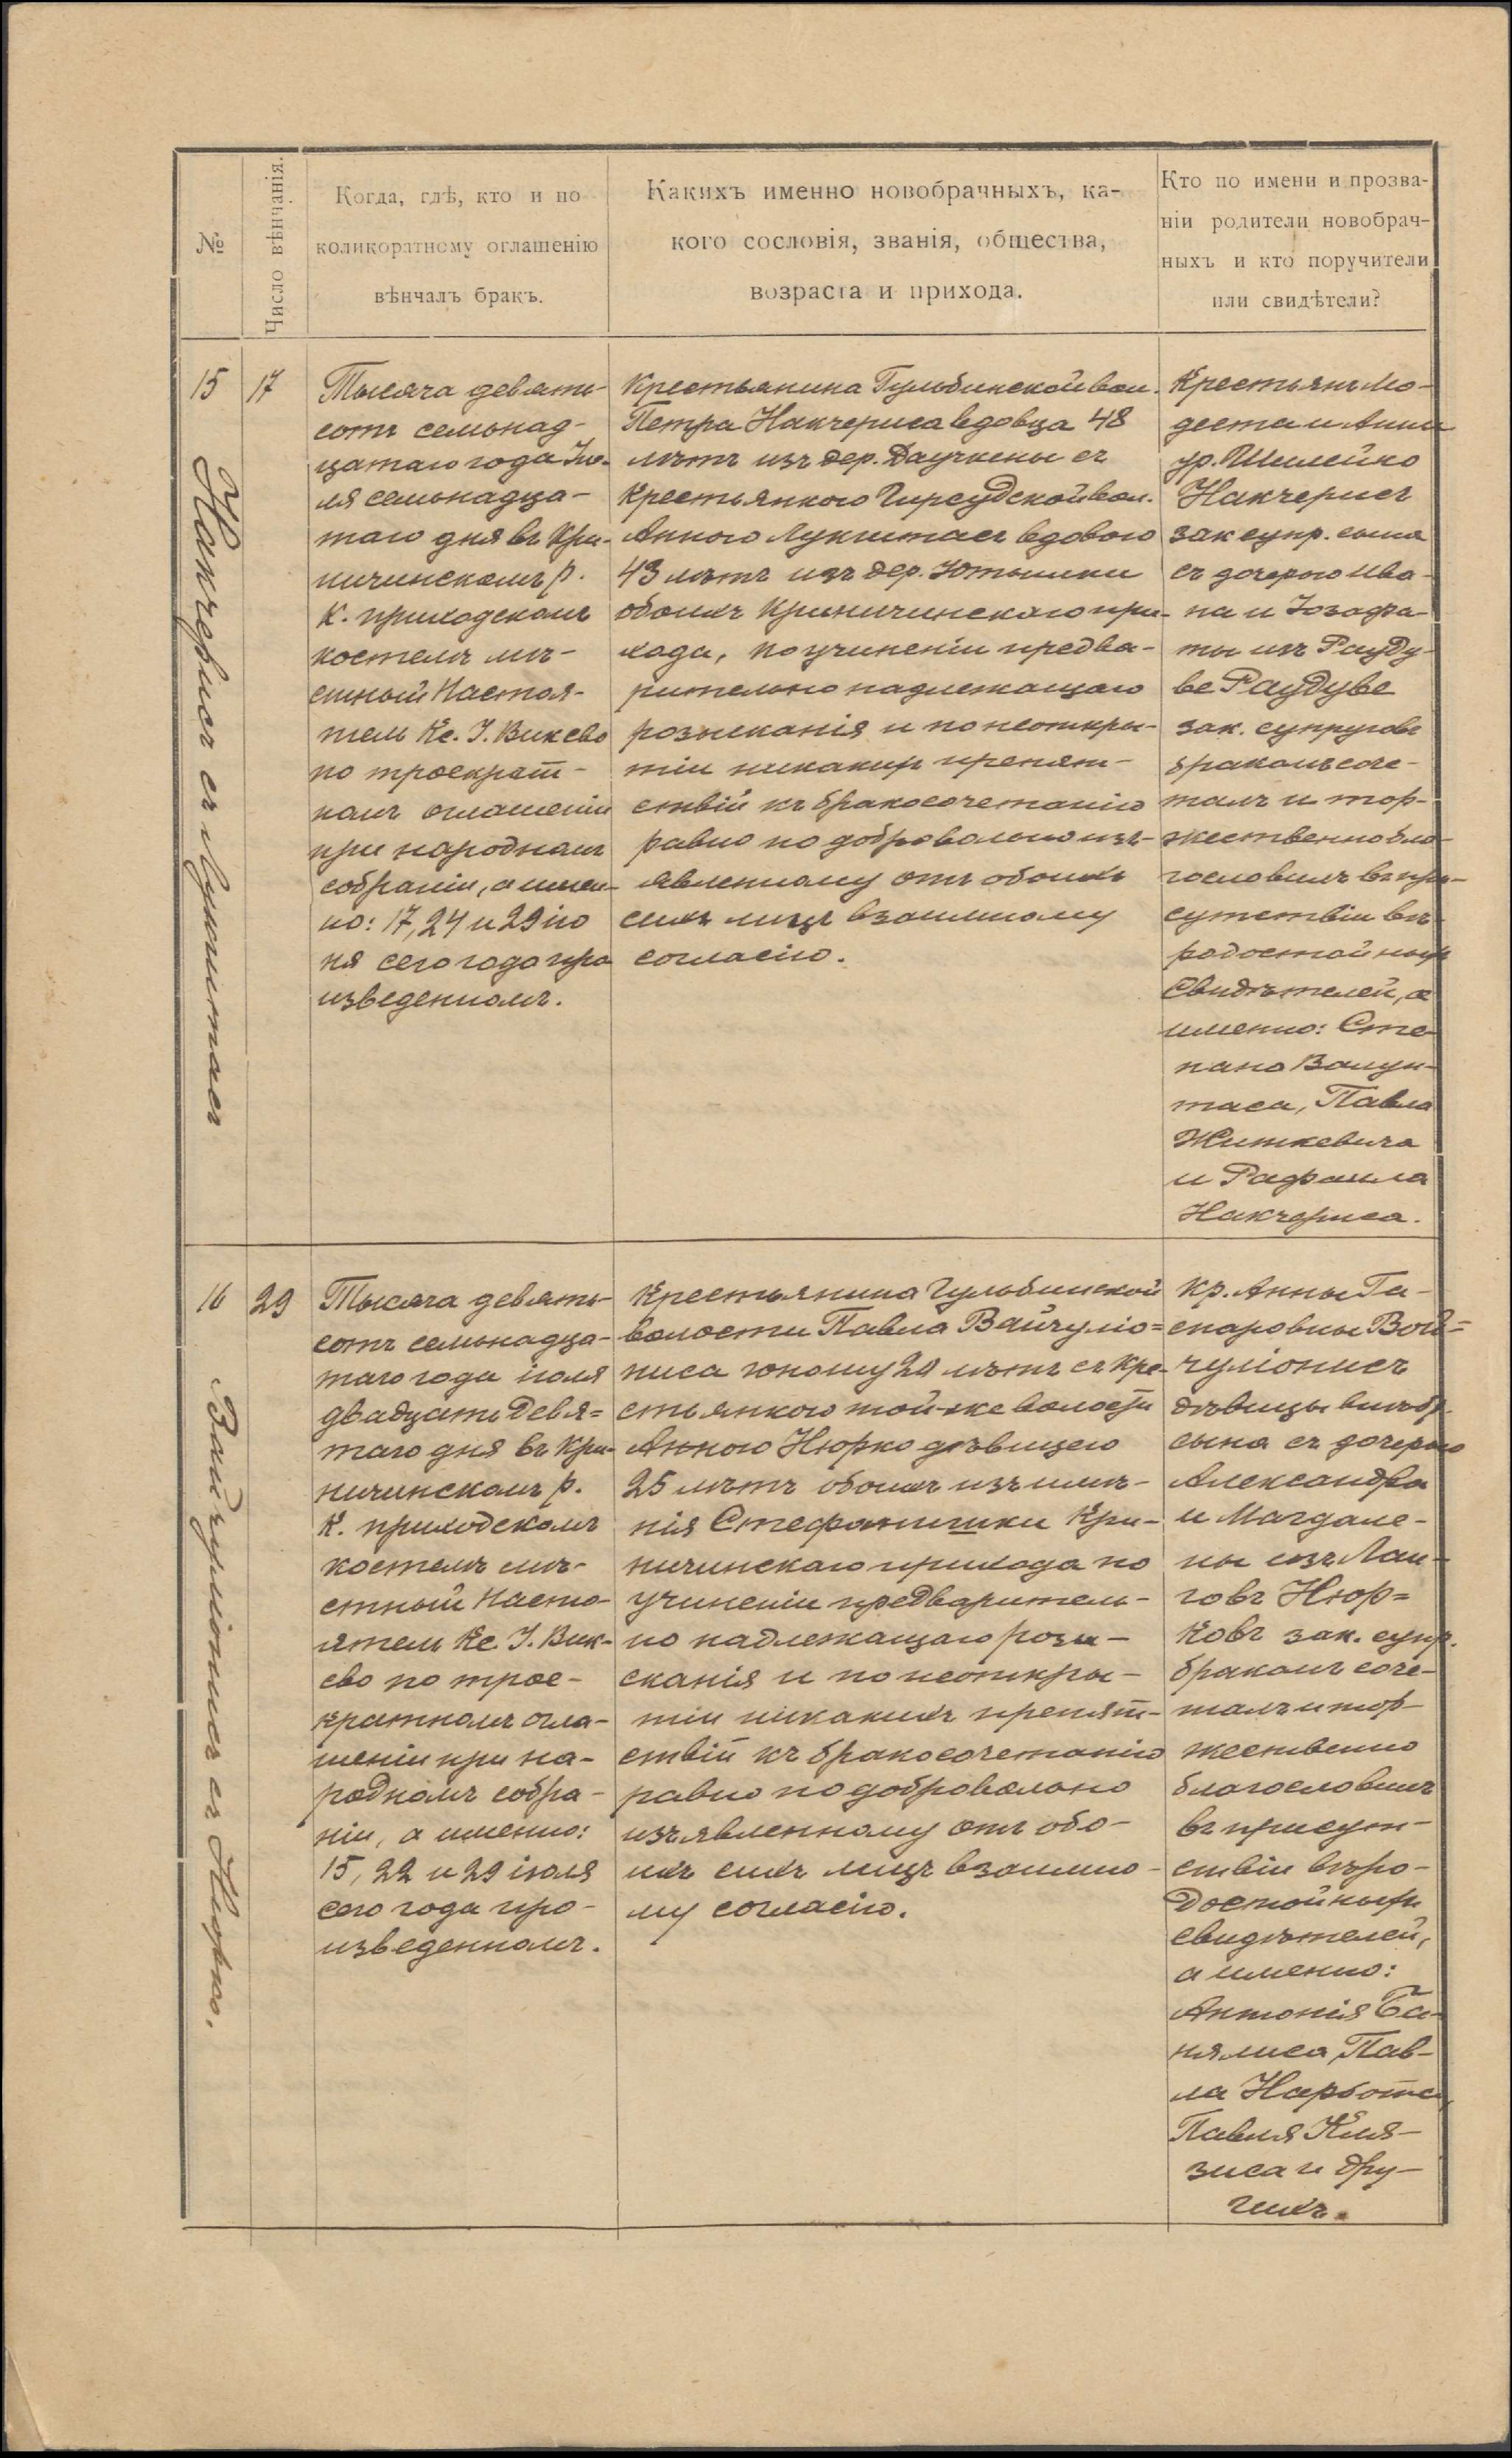 №
Число вѣнчанія.
Когда, гдѣ, кто и по
коликоратному оглашенію
вѣнчалъ бракъ.
Какихъ именно новобрачныхъ, ка-
кого сословія, званія, общества,
возраста и прихода.
Кто по имени и прозва-
ніи родители новобрач-
ныхъ и кто поручители
или свидѣтели?
15
17
Накчерисъ съ Лукштасъ
Тысяча девять-
сотъ семьнад-
цатаго года Iю-
ля семьнадца-
таго дня въ Кри-
ничинскомъ р.
К. приходскомъ
костелѣ мѣ-
стный Настоя-
тель Кс. I. Виксво
по троекрат-
номъ оглашеніи
при народномъ
собраніи, а имен-
но: 17, 24 и 29 ію
ня сего года про
изведенномъ.
Крестьянина Гульбинской вол.
Петра Накчериса вдовца 48
лѣтъ изъ дер. Даучкены съ
крестьянкою Гирсудской вол.
Анною Лукштасъ вдовою
43 лѣтъ изъ дер. Ютышки
обоихъ Криничинскаго при-
хода, по учиненіи предва-
рительно надлежащаго
розысканія и по неоткры-
тіи никакихъ препят-
ствій къ бракосочетанію
равно по добровольно изъ-
явленному отъ обоихъ
сихъ лицъ взаимному
согласію.
Крестьянъ Мо-
деста и Анны
ур. Шилейко
Накчерисъ
зак. супр. сына
съ дочерью Ива-
на и Юзафа-
ты изъ Рауду-
ве Раудуве
зак. супруговъ
бракомъ соче-
талъ и тор-
жественно бла-
гословилъ въ при-
сутствіи вѣ-
родостойныхъ
Свидѣтелей, а
именно: Сте-
пана Валун-
таса, Павла
Житкевича
и Рафаила
Накчериса.
16
29
Вайчуліонисъ съ Нюрко.
Тысяча девять-
сотъ семьнадца-
таго года іюля
двадцать девя=
таго дня въ Кри-
ничинскомъ р.
К. приходскомъ
костелѣ мѣ-
стный Насто-
ятель Кс. I. Вик-
сво по трое-
кратномъ огла-
шеніи при на-
родномъ собра-
ніи, а именно:
15, 22 и 29 іюля
сего года про-
изведенномъ.
Крестьянина Гульбинской
волости Павла Вайчуліо=
ниса юношу 29 лѣтъ съ Кре-
стьянкою той-же волости
Анною Нюрко дѣвицею
25 лѣтъ обоихъ изъ имѣ-
нія Стефанишки Кри-
ничинскаго прихода по
учиненіи предваритель-
но надлежащаго розы-
сканія и по неоткры-
тіи никакихъ препят-
ствій къ бракосочетанію
равно по добровольно
изъявленному отъ обо-
ихъ сихъ лицъ взаимно-
му согласію.
Кр. Анны Га-
спаровны Вой=
чуліонисъ
дѣвицы внѣбр.
сына съ дочерью
Александра
и Магдале-
ны изъ Лан-
говъ Нюр=
ковъ зак. супр.
бракомъ соче-
талъ и тор-
жественно
благословилъ
въ присут-
ствіи вѣро-
достойныхъ
свидѣтелей,
а именно:
Антонія Ба-
нялиса, Пав-
ла Нарбота,
Павла Кля-
зиса и дру-
гихъ.